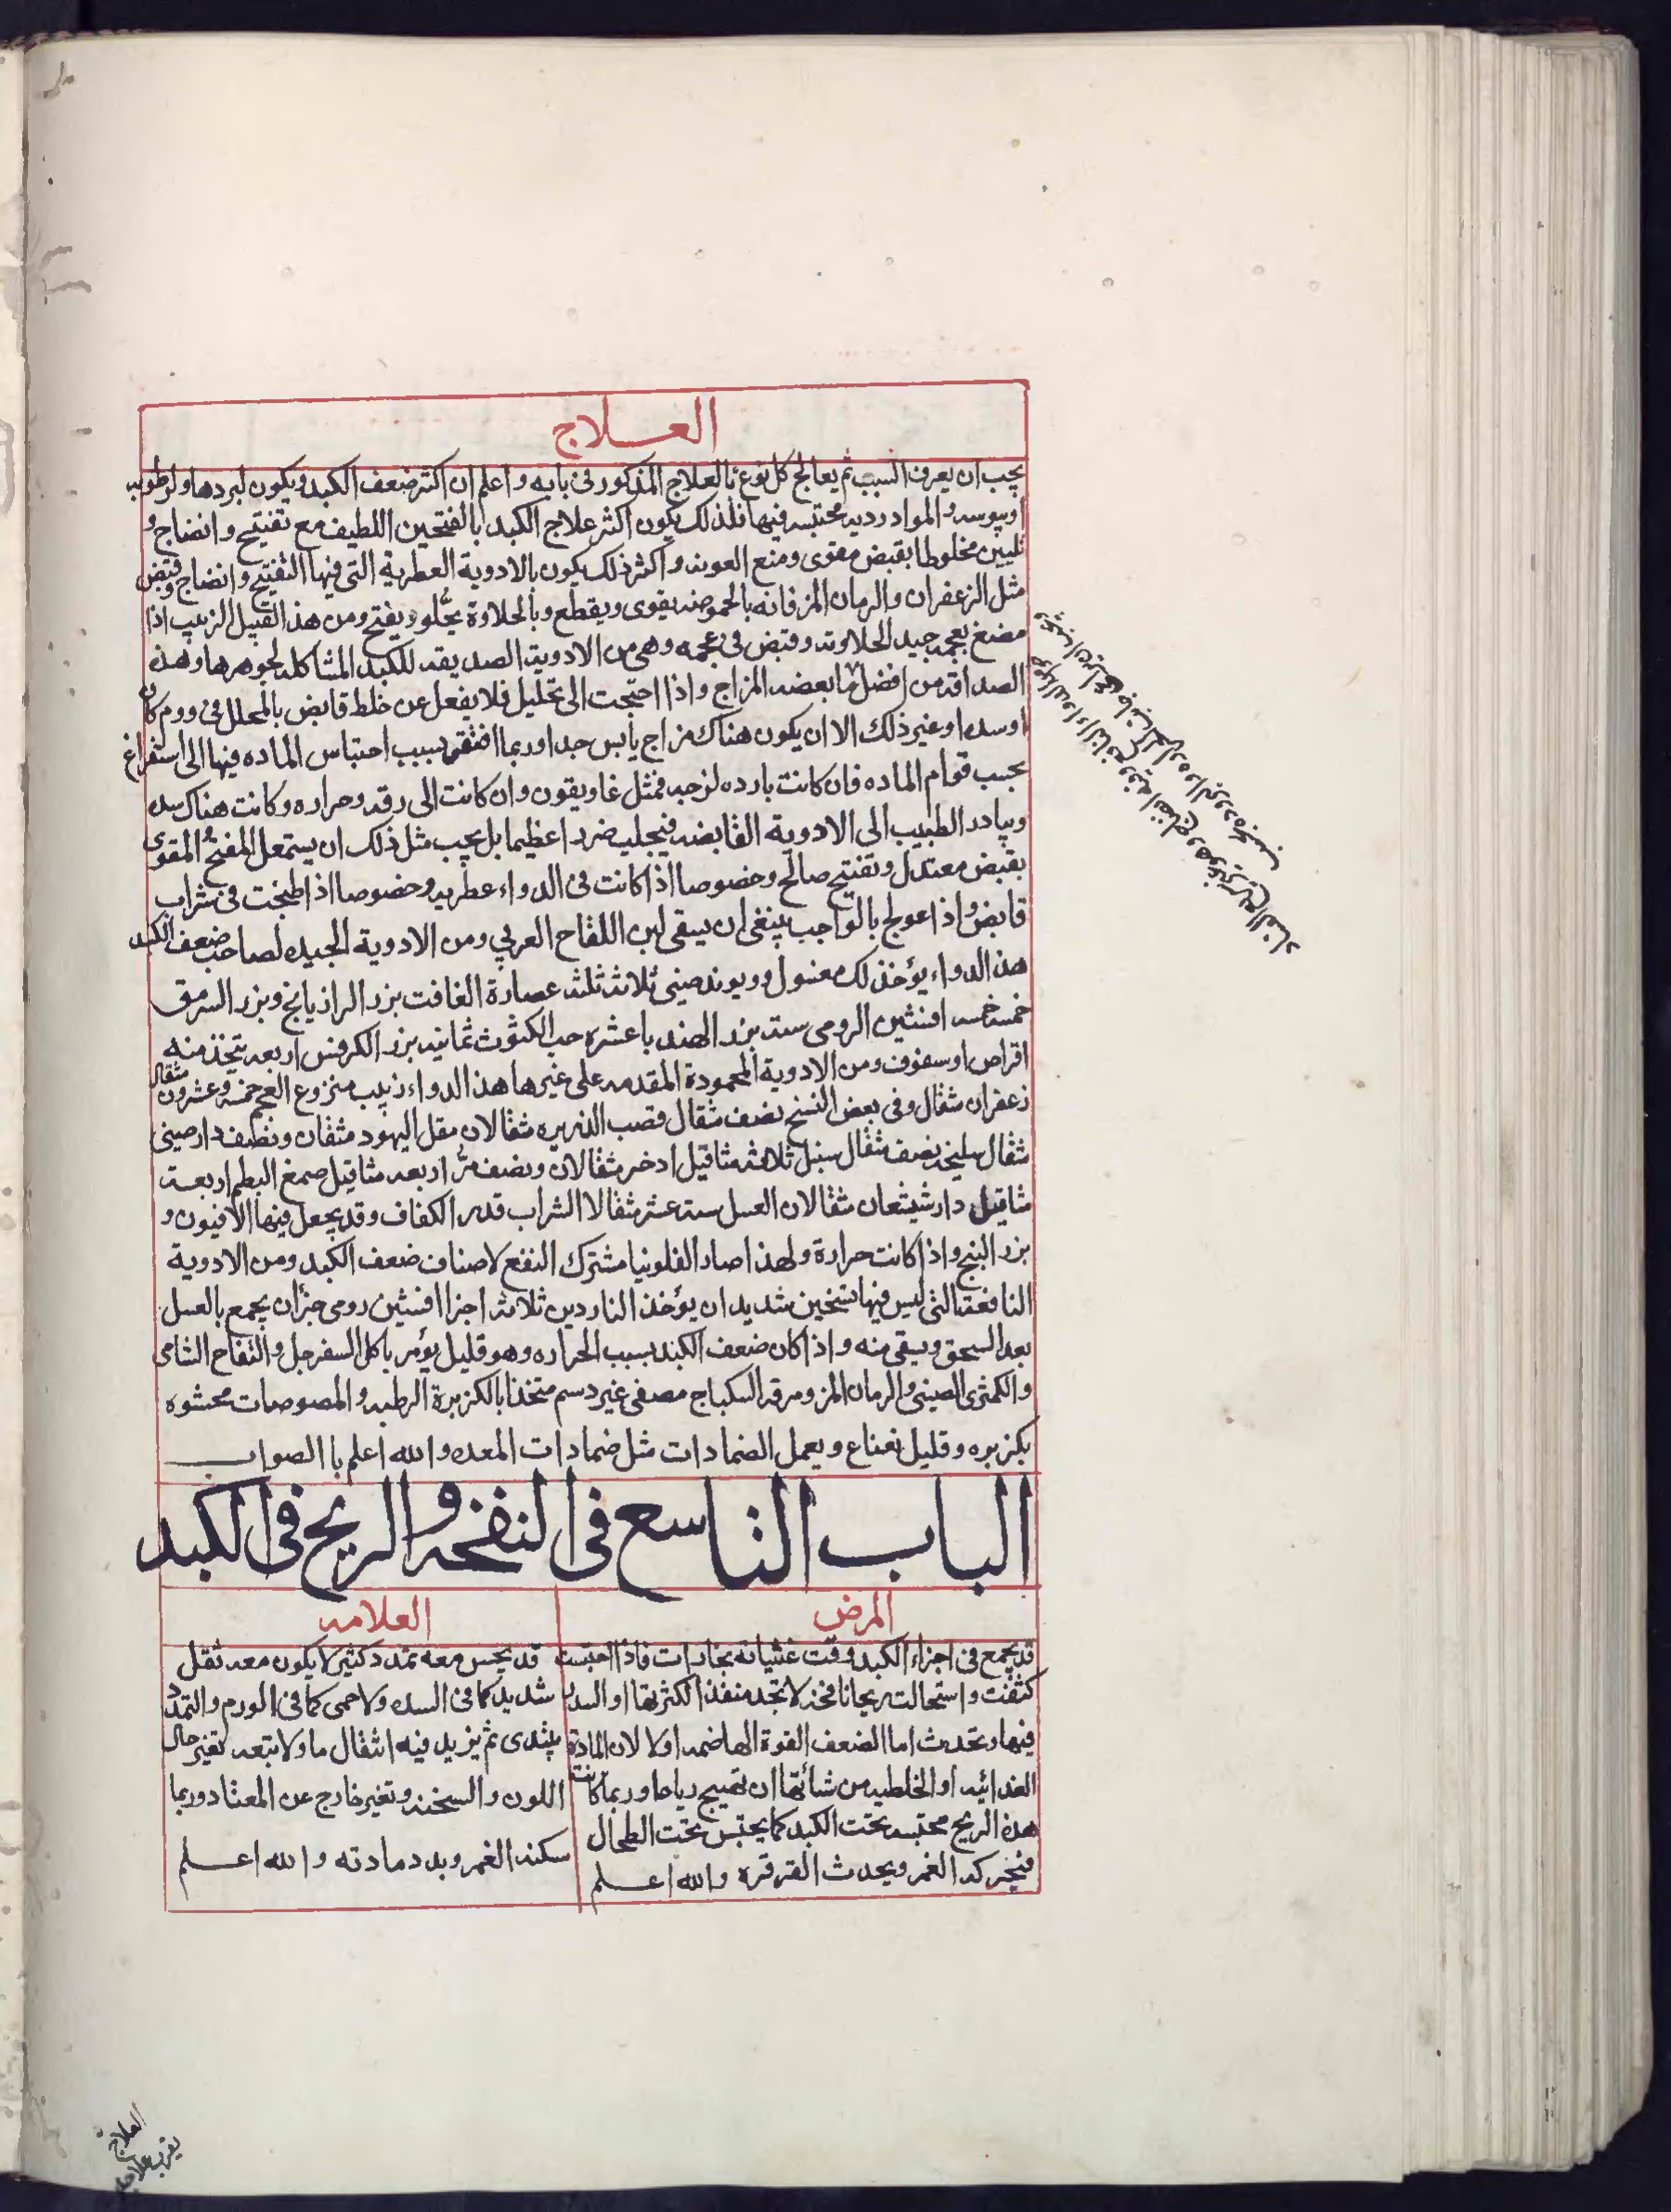 العلاج
يجب ان يعرف السبب ثم يعالج كل نوع بالعلاج المذكور فى بابه واعلم ان اكثر ضعف الكبد ويكون لبردها ولرطوبه
او يبوسه والمواد رديه محتبسه فيها فلذلك يكون اكثر علاج الكبد بالتسخين اللطيف مع تفتيح وانضاج و
تليين مخلوطا بقبض مقوى ومنع العونه واكثر ذلك يكون بالادوية العطرية التى فيها التفتيح وانضاج وقبض
مثل الزعفران والرمان المز فانه بالحموضه يقوى ويقطع وبالحلاوة يجلو ويفتح ومن هذا القبيل الزبيب اذا
مضغ بعجمه جيد الحلاوته وقبض فى عجمه وهى من الادوية الصديقه للكبد المشاكله لجوهرها وهذه
الصداقه من افضل ما بعضه المزاج واذا احتجت الى تحليل فلا يفعل عن خلط قابض بالمحلل فى وورم كان
او سده او غير ذلك الا ان يكون هناك مزاج يابس جدا وربما افتقر بسبب احتباس الماده فيها الى استفراغ
بحسب قوام الماده فان كانت بارده لزجه فمثل غاريقون وان كانت الى رقه وحراره وكانت هناك سده
ويبادر الطبيب الى الادوية القابضه فيجلب ضررا عظيما بل يجب مثل ذلك ان يستعمل المفتح المقوى
بقبض معتدل وتفتيح صالح وخصوصا اذا كانت فى الدواء عطريه وخصوصا اذا طبخت فى شراب
قابض واذا عولج بالواجب ينبغى ان يسقى لبن اللقاح العربي ومن الادوية الجيده لصاحب ضعف الكبد
هذا الدواء يؤخذ لك مغسول وريوند صينى ثلاثه ثلثه عصارة الغافت بزر الرازيانج وبزر السرمق
خمسه خمسه افسنتين الرومى سته بزر الهندبا عشره حب الكثوث ثمانيه بزر الكرفس اربعه يتخذ منه
اقراص او سفوف ومن الادوية المحمودة المقدمه على غيرها هذا الدواء زبيب منزوع العجم خمسه وعشرون مثقال
زعفران مثقال وفى بعض النسخ نصف مثقال قصب الذريره مثقالان مقل اليهود مثقان ونصف دارصينى
مثقال سليخه نصف مثقال سنبل ثلاثه مثاقيل اذخر مثقالان ونصف مر اربعه مثاقيل صمغ البطم اربعة
مثاقيل دارشيشعان مثقالان العسل سته عشر مثقالا الشراب قدر الكفاف وقد يجعل فيها الافيون و
بزر البنج واذا كانت حرارة ولهذا صار الفلونيا مشترك النفع لاصناف ضعف الكبد ومن الادوية
النافعة التى ليس فيها تسخين شديد ان يؤخذ الناردين ثلاثه اجزا افسنتين رومى جزأن يجمع بالعسل
بعد السحق ويسقى منه واذا كان ضعف الكبد بسبب الحراره وهو قليل يؤمر باكل السفرجل والتفاح الشامى
والكمثرى الصينى والرمان المز ومرقه السكباج مصفى غير دسم متخذا بالكزبرة الرطبه والمصوصات محشوه
بكزبره وقليل نعناع ويعمل الضمادات مثل ضمادات المعده والله اعلم با الصواب
الباب التاسع فى النفخه والريح فى الكبد
المرض
قد يجمع فى اجزاء الكبد وقت غشيانه بخارات فاذا احتبست
كثفت واستحالت ريحا نافخه لا تجد منفذا لكثرتها او السدد
فيها وتحدث اما الضعف القوة الهاضمه او لا لان المادة
الغدائيه او الخلطيه من شانها ان تهيج رياحا وربما كانت
هذه الريح محتبسه تحت الكبد كما يحتبس تحت الطحال
فيحركه الغمر ويحدث القرقره والله اعلم
العلامه
قد يحس معه تمدد كثير لا يكون معه ثقل
شديد كما فى السده ولا حمى كما فى الورم والتمدد
يبتدى ثم يزيد فيه انثقال ما ولا يتبعه تغير حال
اللون والسخنه وتغير خارج عن المعتاد وربما
سكنه الغمر وبدد مادته والله اعلم
العلاج
يقرب علاجه